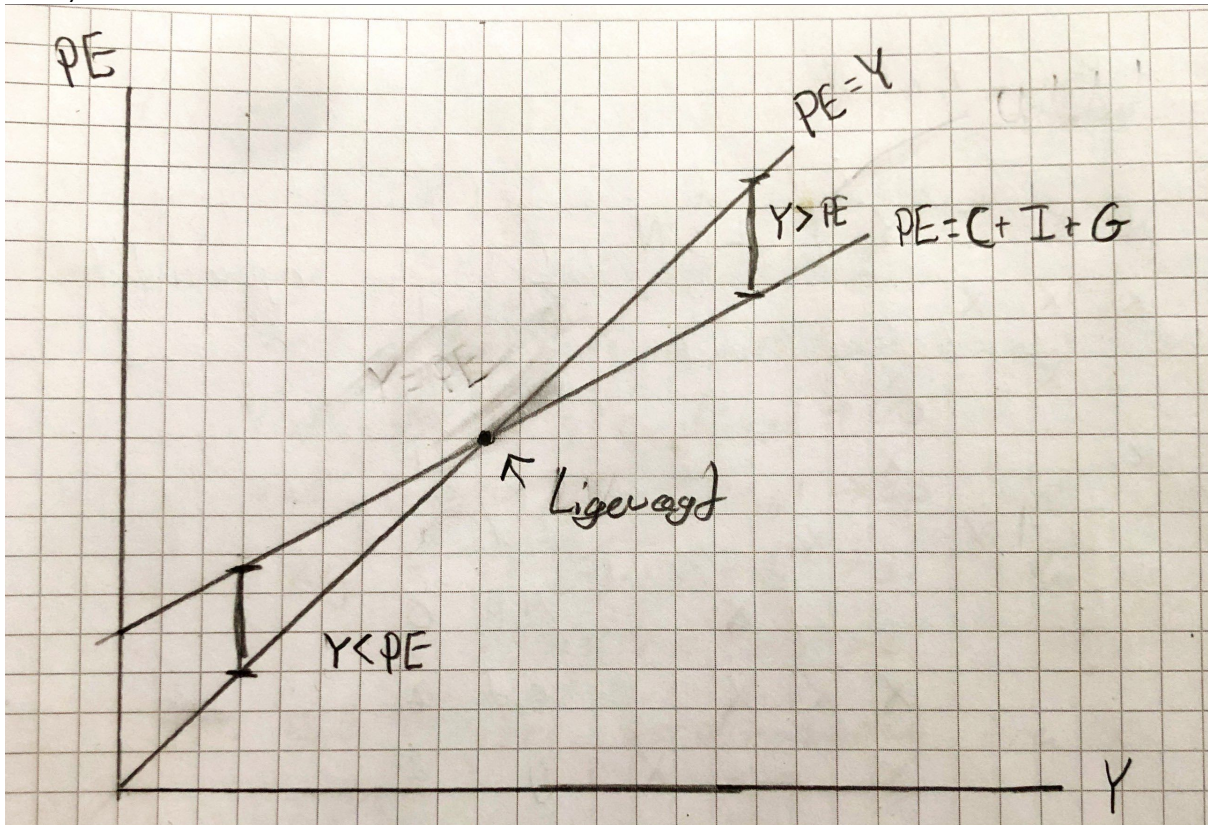 PE
PE=Y
Y>PE
PE=C+I+G
Y=PE
Ligevægt
Y<PE
Y